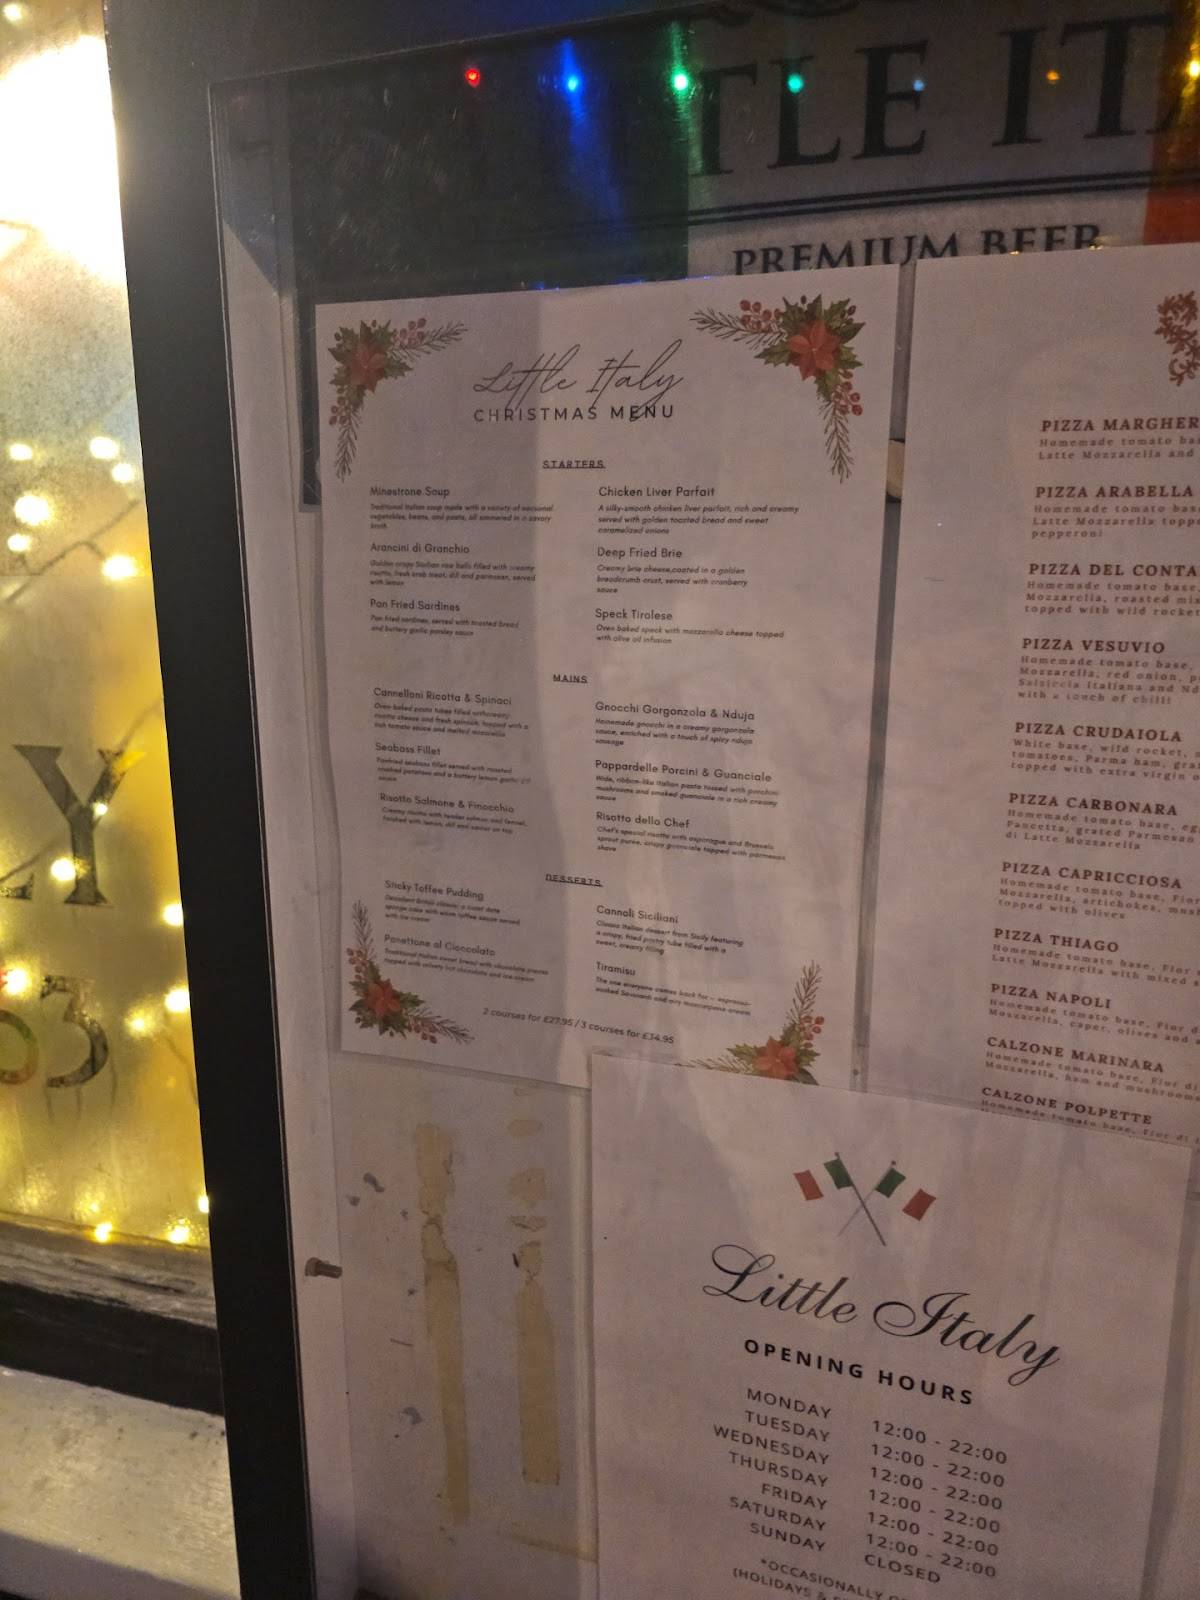 TLE ITA
PREMIUM BEER
Little Italy
CHRISTMAS MENU
STARTERS
Minestrone Soup
Traditional Italian soup made with a variety of seasonal
vegetables, beans, and pasta, all simmered in a savory
broth
Arancini di Granchio
Golden crispy Sicilian rice balls filled with creamy
risotto, fresh crab meat, dill and parmesan, served
with lemon
Pan Fried Sardines
Pan fried sardines, served with toasted bread
and buttery garlic parsley sauce
Chicken Liver Parfait
A silky-smooth chicken liver parfait, rich and creamy
served with golden toasted bread and sweet
caramelized onions
Deep Fried Brie
Creamy brie cheese,coated in a golden
breadcrumb crust, served with cranberry
sauce
Speck Tirolese
Oven baked speck with mozzarella cheese topped
with olive oil infusion
MAINS
Cannelloni Ricotta & Spinaci
Oven-baked pasta tubes filled with creamy
ricotta cheese and fresh spinach, topped with a
rich tomato sauce and melted mozzarella
Seabass Fillet
Panfried seabass fillet served with roasted
crushed potatoes and a buttery lemon garlic dill
sauce
Risotto Salmone & Finocchio
Creamy risotto with tender salmon and fennel,
finished with lemon, dill and on top
Gnocchi Gorgonzola & Nduja
Homemade gnocchi in a creamy gorgonzola
sauce, enriched with a touch of spicy nduja
sausage
Pappardelle Porcini & Guanciale
Wide, ribbon-like Italian pasta tossed with porchini
mushrooms and smoked guanciale in a rich creamy
sauce
Risotto dello Chef
Chef's special risotto with asparagus and Brussels
sprout puree, crispy guanciale topped with parmesan
shave
DESSERTS
Sticky Toffee Pudding
Decadent British classic: a moist date
sponge cake with warm toffee sauce served
with ice cream
Panettone al Cioccolato
Traditional Italian sweet bread with chocolate pieces
topped with velvety hot chocolate and ice cream
Cannoli Siciliani
Classic Italian dessert from Sicily featuring
a crispy, fried pastry tube filled with a
sweet, creamy filling
Tiramisu
The one everyone comes back for – espresso-
soaked Savoiardi and airy mascarpone cream
2 courses for £27.95 / 3 courses for £34.95
PIZZA MARGHER
Homemade tomato ba
Latte Mozzarella and
PIZZA ARABELLA
Homemade tomato bas
Latte Mozzarella topp
pepperoni
PIZZA DEL CONTA
Homemade tomato base,
Mozzarella, roasted mix
topped with wild rocket
PIZZA VESUVIO
Homemade tomato base,
Mozzarella, red onion, p
Salsiccia Italiana and Nd
with a touch of chilli
PIZZA CRUDAIOLA
White base, wild rocket,
tomatoes, Parma ham, grat
topped with extra virgin o
PIZZA CARBONARA
Homemade tomato base, eg
Pancetta, grated Parmesan
di Latte Mozzarella
PIZZA CAPRICCIOSA
Homemade tomato base, Fior
Mozzarella, artichokes, mush
topped with olives
PIZZA THIAGO
Homemade tomato base, Fior
Latte Mozzarella with mixed s
PIZZA NAPOLI
Homemade tomato base, Fior d
Mozzarella, caper, olives and a
CALZONE MARINARA
Homemade tomato base, Fior di
Mozzarella, ham and mushrooms
CALZONE POLPETTE
Homemade tomato base, Fior di
LY
63
Little Italy
OPENING HOURS
MONDAY 12:00 - 22:00
TUESDAY 12:00 - 22:00
WEDNESDAY 12:00 - 22:00
THURSDAY 12:00 - 22:00
FRIDAY 12:00 - 22:00
SATURDAY 12:00 - 22:00
SUNDAY CLOSED
*OCCASIONALLY O
(HOLIDAYS &